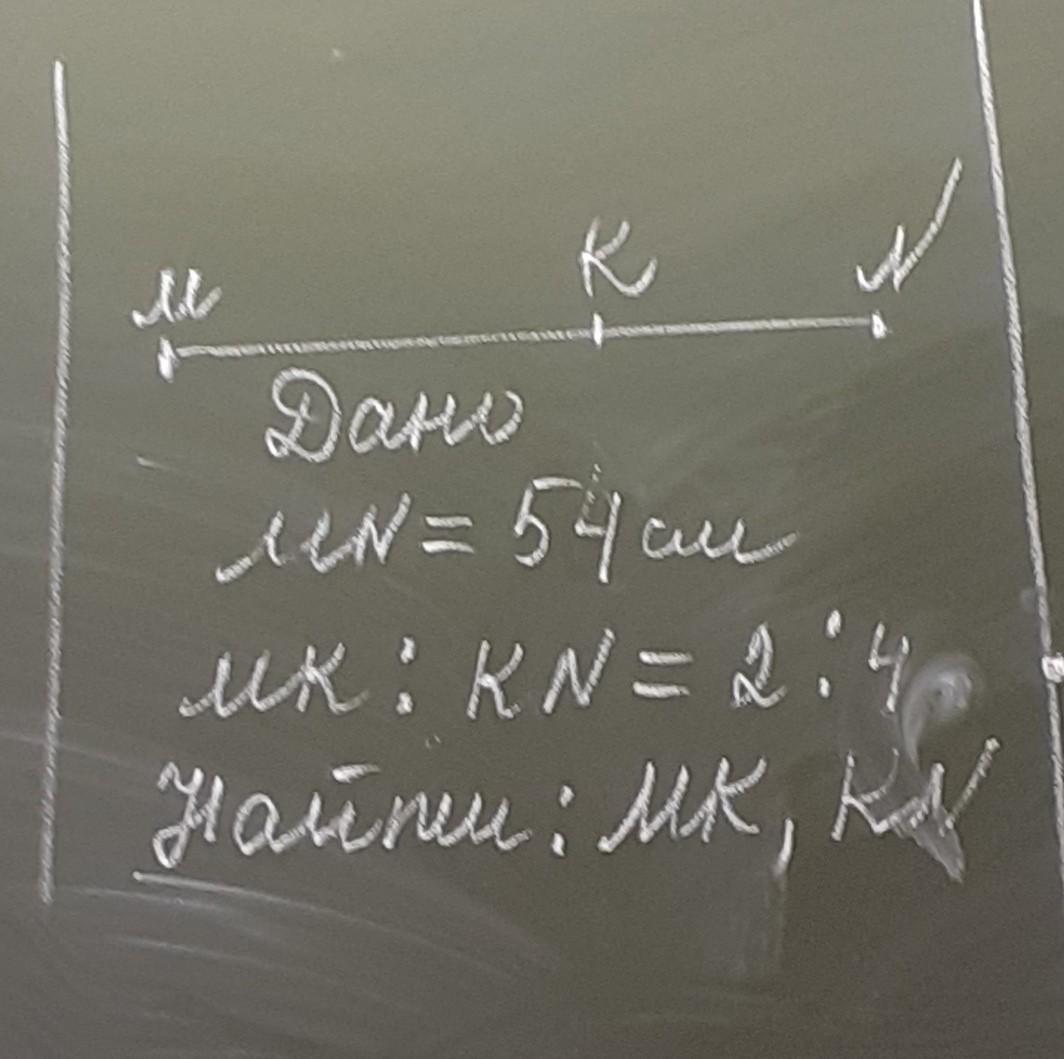 M K N
Дано
MN = 54 см
MK : KN = 2 : 4
Найти: MK, KN